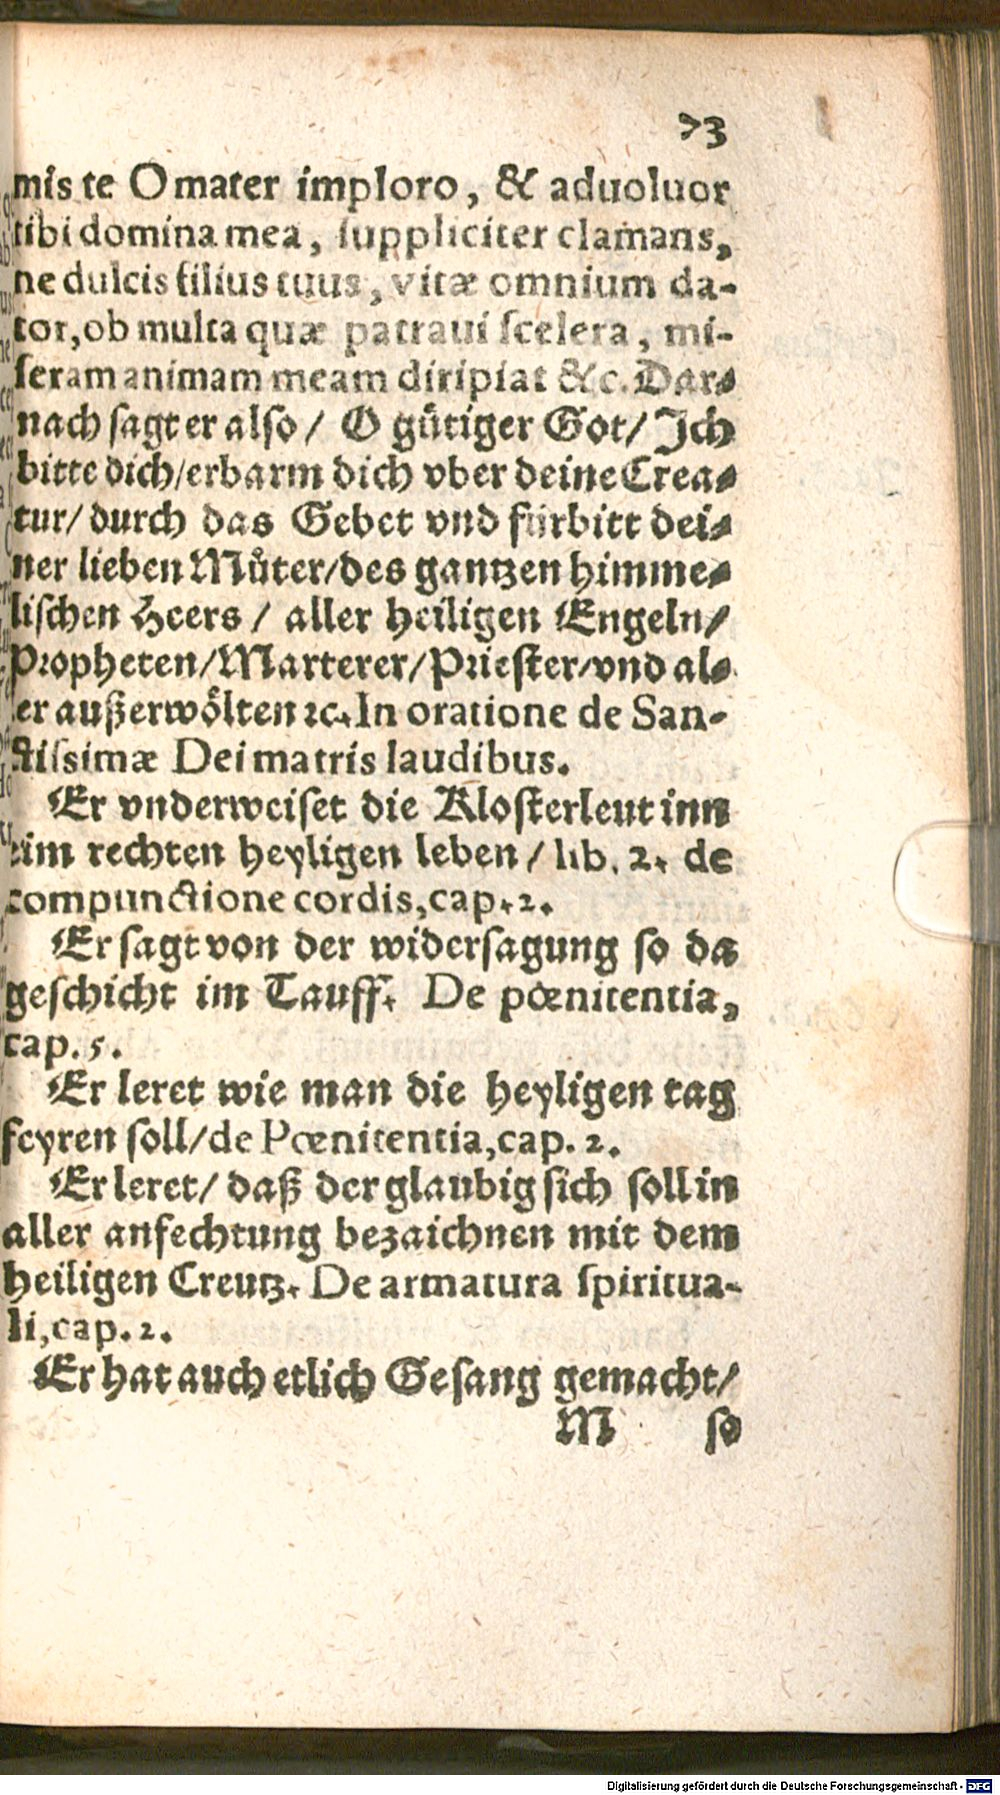 73
mis te O mater imploro, & aduoluor
tibi domina mea, suppliciter clamans,
ne dulcis filius tuus, vitæ omnium da-
tor, ob multa quæ patraui scelera, mi-
seram animam meam diripiat &c. Dar-
nach sagt er also / O gůtiger Got / Ich
bitte dich / erbarm dich vber deine Crea-
tur / durch das Gebet vnd fürbitt dei-
ner lieben Můter / des gantzen himme-
lischen Heers / aller heiligen Engeln /
Propheten / Marterer / Priester / vnd al-
er außerwölten ꝛc. In oratione de San-
ctissimæ Dei matris laudibus.
Er vnderweiset die Klosterleut inn
eim rechten heyligen leben / lib. 2. de
compunctione cordis, cap. 2.
Er sagt von der widersagung so da
geschicht im Tauff. De pœnitentia,
cap. 5.
Er leret wie man die heyligen tag
feyren soll / de Pœnitentia, cap. 2.
Er leret / daß der glaubig sich soll in
aller anfechtung bezaichnen mit dem
heiligen Creutz. De armatura spiritua-
li, cap. 2.
Er hat auch etlich Gesang gemacht /
M so
Digitalisierung gefördert durch die Deutsche Forschungsgemeinschaft - DFG